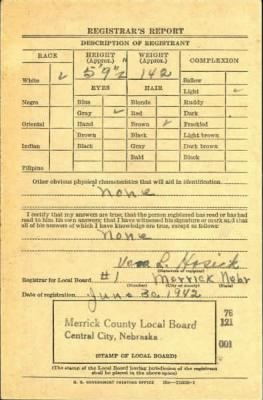 REGISTRAR'S REPORT
DESCRIPTION OF REGISTRANT
RACE HEIGHT (Approx.) WEIGHT (Approx.) COMPLEXION
White ✓ 5' 9"½ 142 Sallow
EYES HAIR Light ✓
Negro Blue Blonde Ruddy
Gray ✓ Red Dark
Oriental Hazel Brown ✓ Freckled
Brown Black Light brown
Indian Black Gray Dark brown
Bald Black
Filipino
Other obvious physical characteristics that will aid in identification
None
I certify that my answers are true; that the person registered has read or has had
read to him his own answers; that I have witnessed his signature or mark and that
all of his answers of which I have knowledge are true, except as follows:
None
Vera L. Hosick
(Signature of registrar)
Registrar for Local Board #1 Merrick Nebr
(Number) (City or county) (State)
Date of registration June 30, 1942
Merrick County Local Board
Central City, Nebraska
76
121
001
(STAMP OF LOCAL BOARD)
(The stamp of the Local Board having jurisdiction of the registrant
shall be placed in the above space)
U. S. GOVERNMENT PRINTING OFFICE